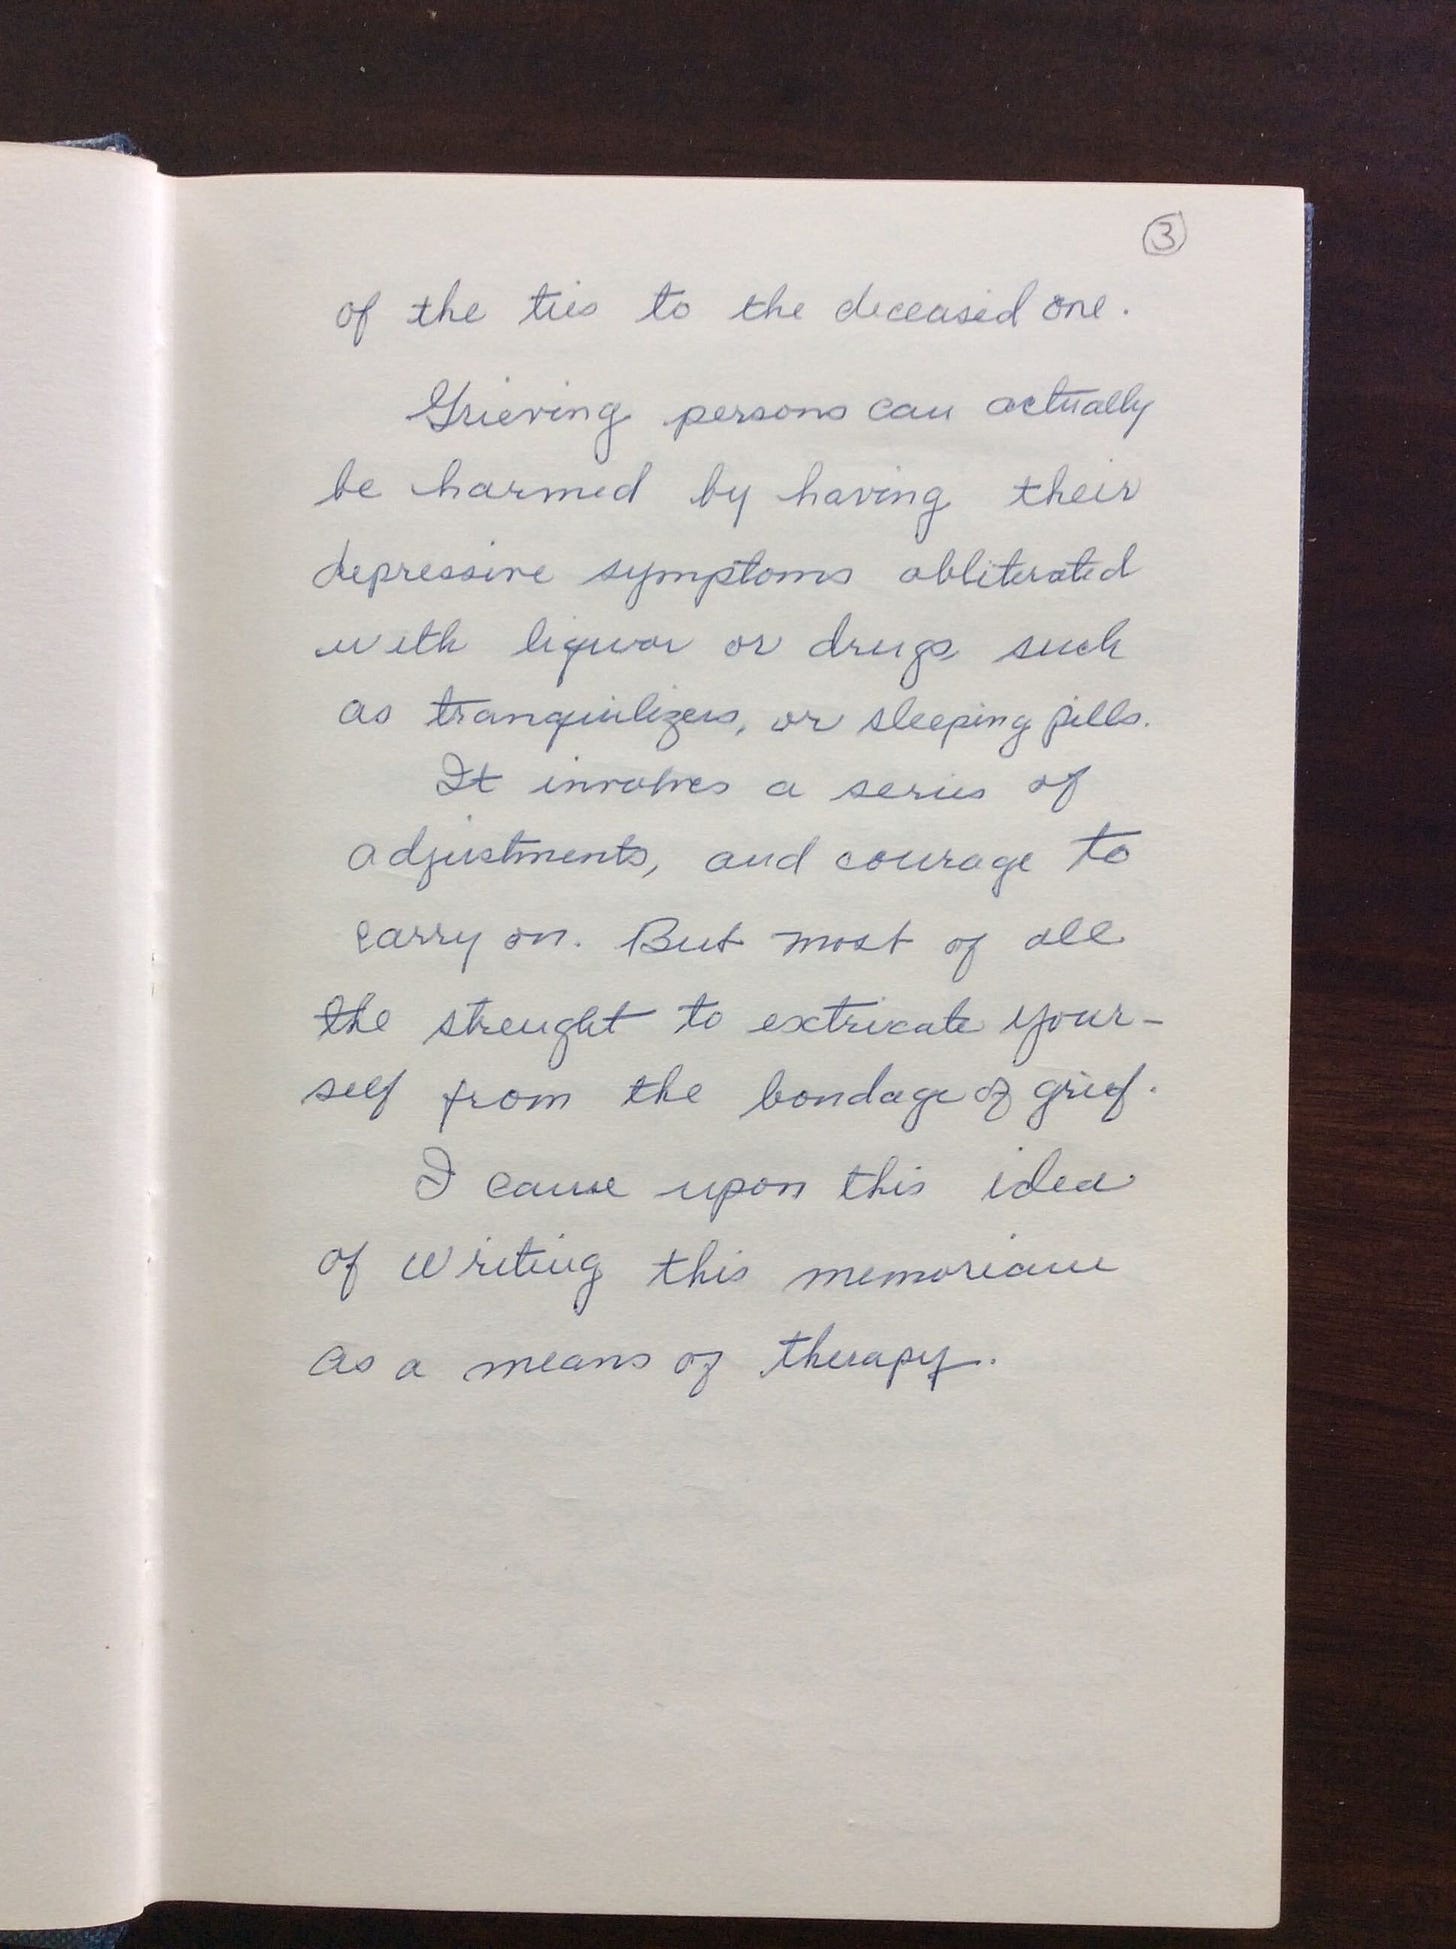 3
of the ties to the deceased one.
Grieving persons can actually
be harmed by having their
depressive symptoms obliterated
with liquor or drugs such
as tranquilizers, or sleeping pills.
It involves a series of
adjustments, and courage to
carry on. But most of all
the strenght to extricate your-
self from the bondage of grief.
I came upon this idea
of writing this memoriam
as a means of therapy.